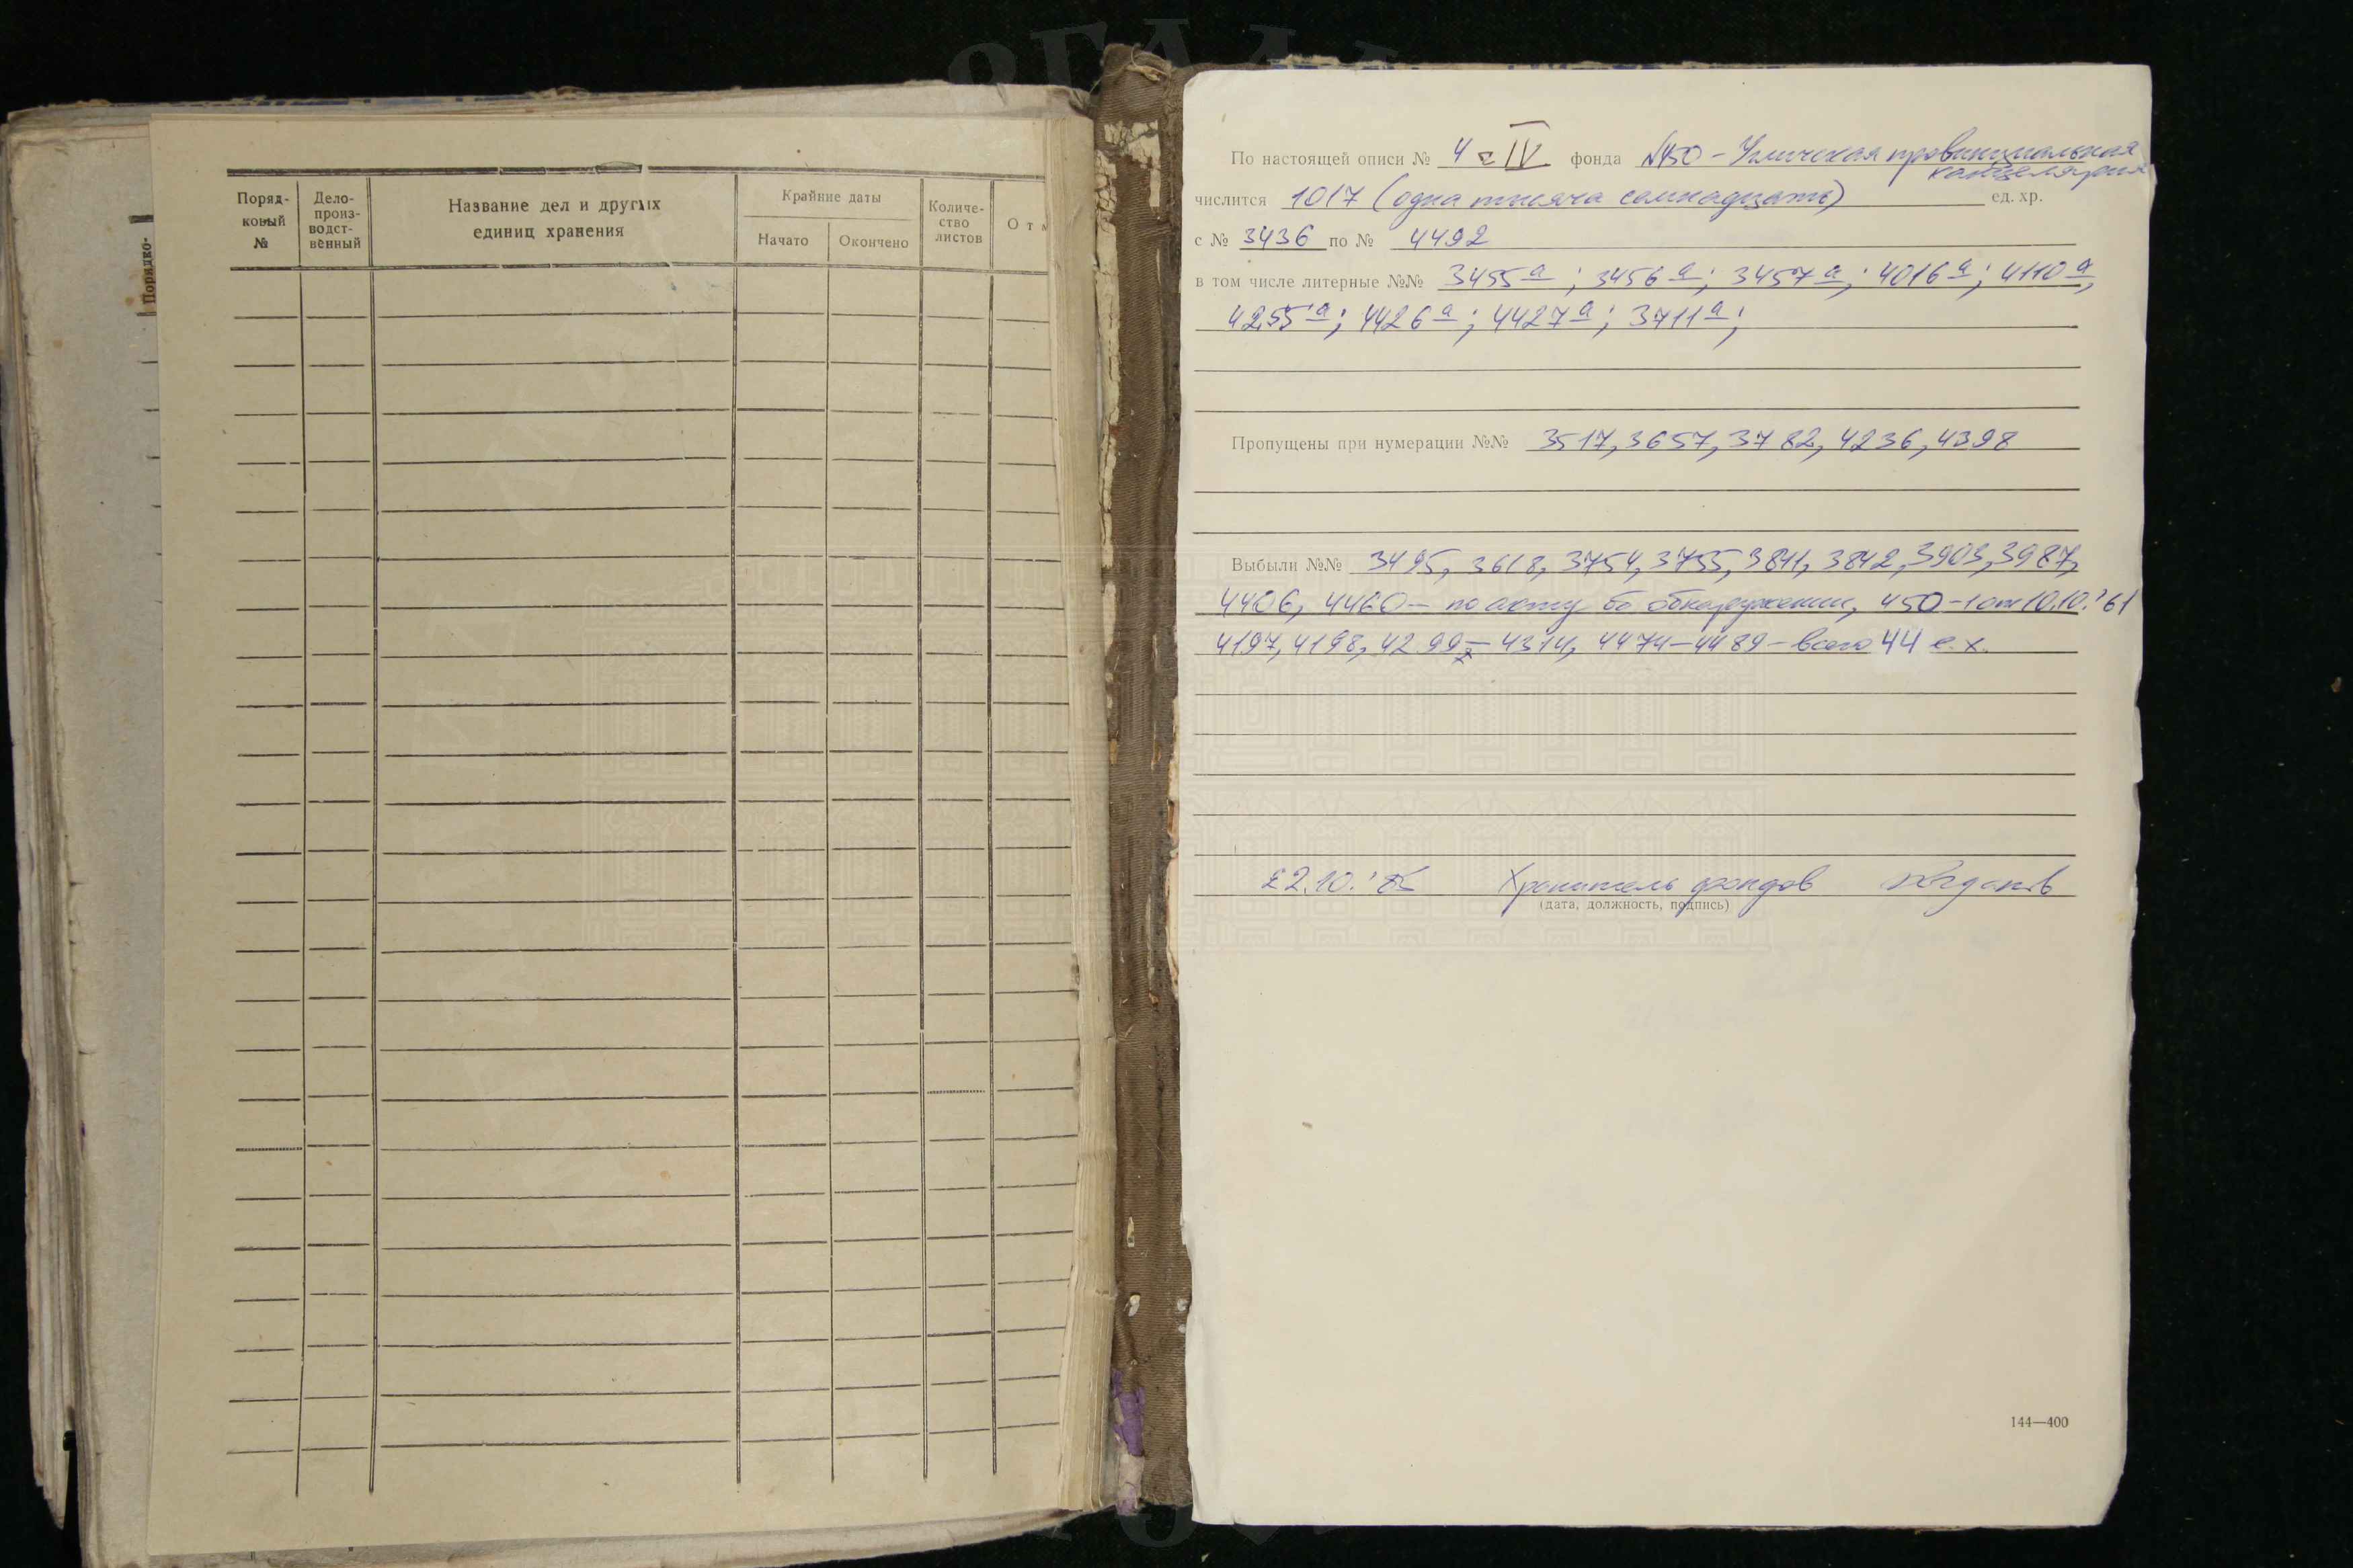 Порядко-
Поряд-
ковый
№
Дело-
произ-
водст-
венный
Название дел и других
единиц хранения
Крайние даты
Начато
Окончено
Количе-
ство
листов
Отм
По настоящей описи № 4 т. IV фонда №450 - Угличская провинциальная
канцелярия
числится 1017 (одна тысяча семнадцать) ед. хр.
с № 3436 по № 4492
в том числе литерные №№ 3455а; 3456а; 3457а; 4016а; 4110а,
4255а; 4426а; 4427а; 3711а;
Пропущены при нумерации №№ 3517, 3657, 3782, 4236, 4398
Выбыли №№ 3495, 3618, 3754, 3755, 3841, 3842, 3903, 3987,
4406, 4460 - по акту обнаружении, 450-1 от 10.10.'61
4197, 4198, 4299 - 4314, 4474-4489 - всего 44 е.х.
22.10.'85 Хранитель фондов
(дата, должность, подпись)
144—400